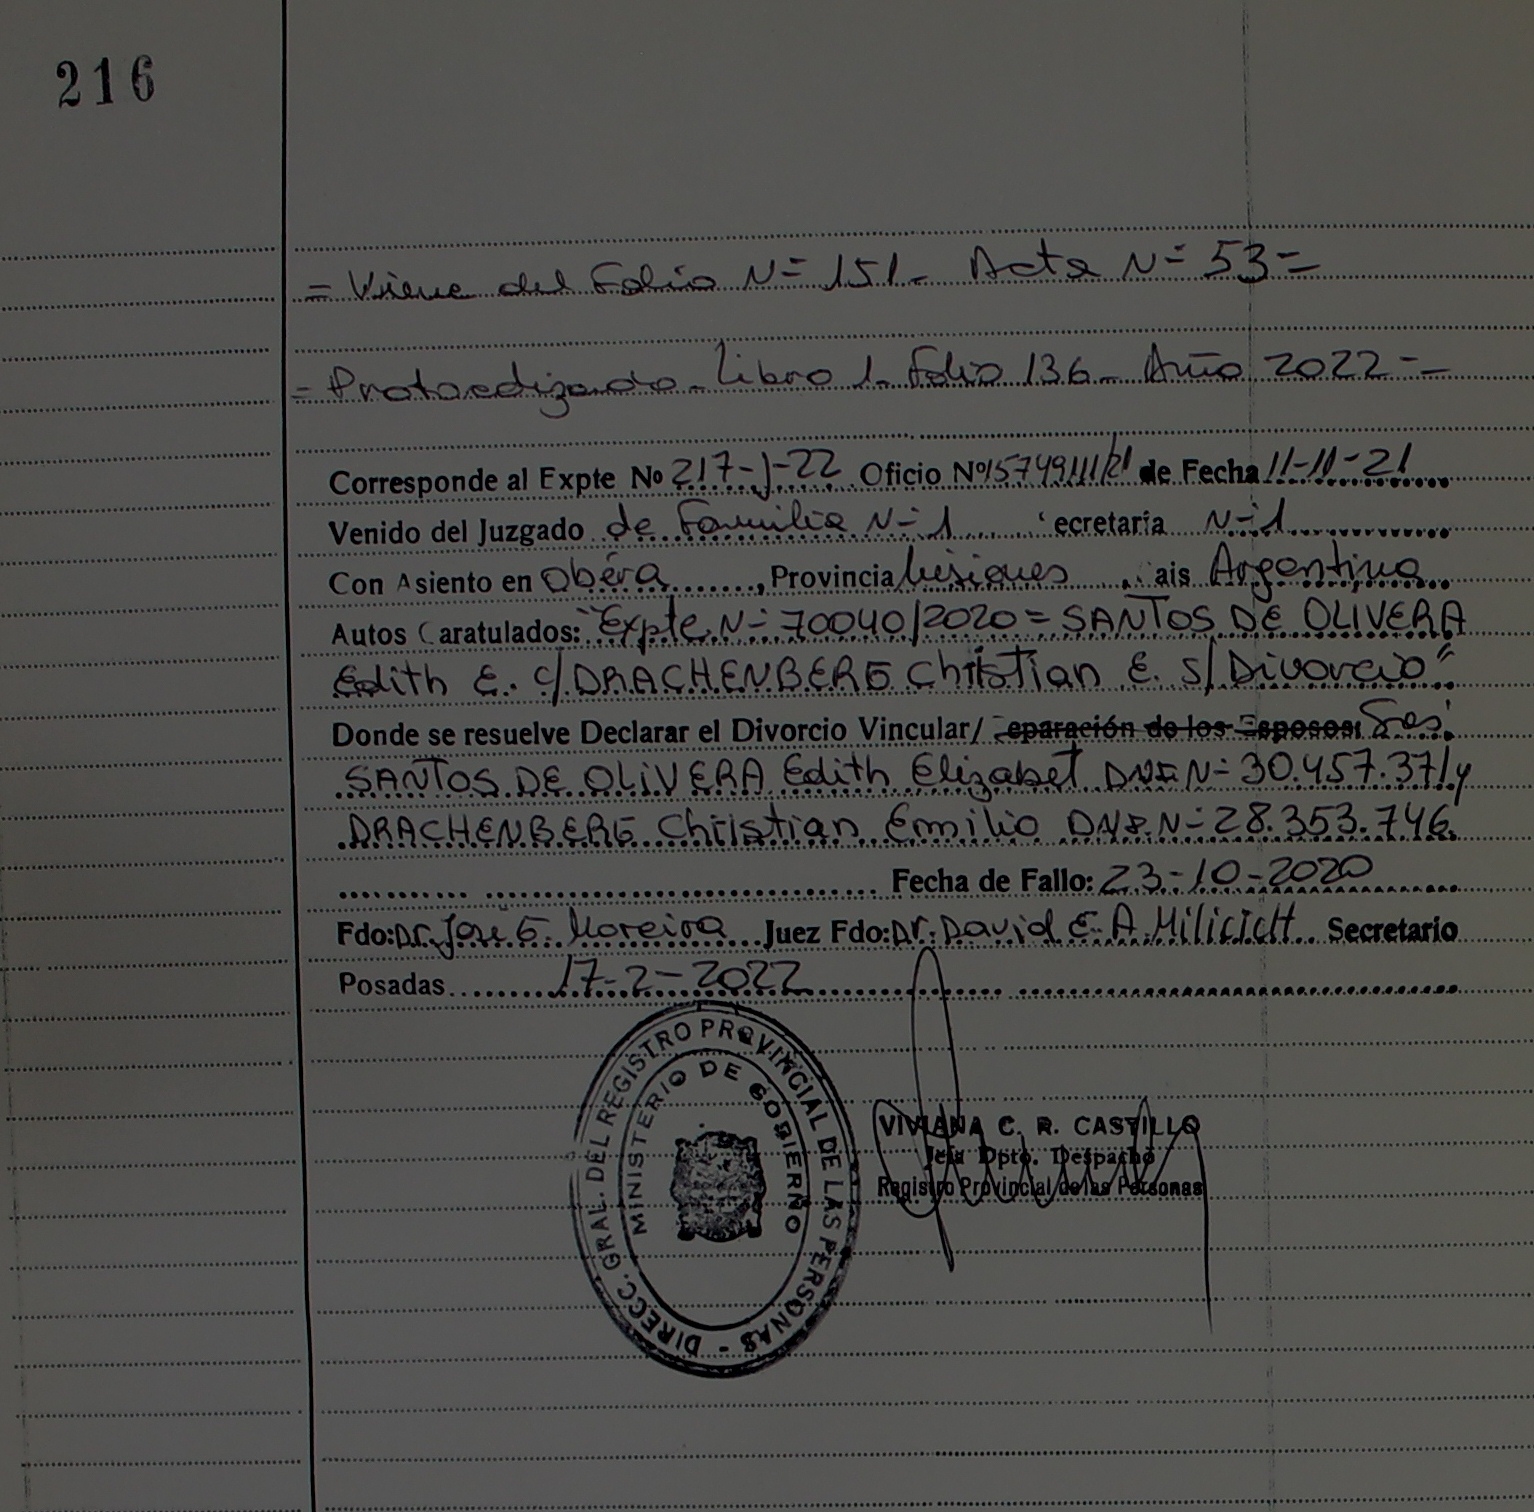 216
= Viene del Folio N= 151_ Acta N= 53=
= Protocolizado_ Libro 1_ Folio 136_ Año 2022=
Corresponde al Expte Nº 217-J-22 Oficio Nº 15749111/21 de Fecha 11-11-21
Venido del Juzgado de Familia N=1 ecretaria N=1
Con Asiento en Oberá, Provincia Misiones ais Argentina
Autos Caratulados: "Expte N= 70040/2020= SANTOS DE OLIVERA
Edith E. c/ DRACHENBERG Christian E. s/ Divorcio"
Donde se resuelve Declarar el Divorcio Vincular/ eparación de los Esposos: Sres.
SANTOS DE OLIVERA Edith Elizabet DNI N= 30.457.371 y
DRACHENBERG Christian Emilio DNI. N= 28.353.746.
Fecha de Fallo: 23-10-2020
Fdo: Dr. José G. Moreira Juez Fdo: Dr. David E. A. Milicich Secretario
Posadas 17-2-2022
DIRECC. GRAL. DEL REGISTRO PROVINCIAL DE LAS PERSONAS -
MINISTERIO DE GOBIERNO
VIVIANA C. R. CASTILLO
Jefa Dpto. Despacho
Registro Provincial de las Personas